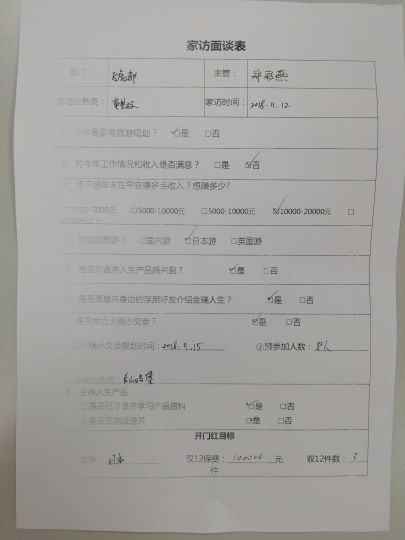 家访面谈表
部门： 主管：
家访业务员： 家访时间：2018.11.12
1、今年是否有旅游规划？ ☑是 □否
2、对今年工作情况和收入是否满意？ □是 ☑否
3、想不想年末在平安赚多点收入？想赚多少？
□3000-5000元 □5000-10000元 □5000-10000元 ☑10000-20000元 □
旅游？ □国内游 ☑日本游 □英国游
5、是否对金瑞人生产品感兴趣？ ☑是 □否
6、是否愿意向身边的亲朋好友介绍金瑞人生？ ☑是 □否
7、是否举办火锅小交会？ ☑是 □否
①火锅小交会规划时间：2018.11.15 ②预参加人数：8人
8、金瑞人生产品
①是否已下发并学习产品资料 ☑是 □否
②是否已完成通关 ☑是 □否
开门红目标
日本 双12保费：100000 元 双12件数：3
件